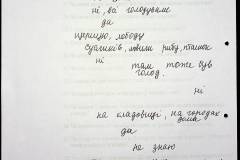 ні, всі голодували
да
щирицю, лободу
ловили рибу, пташок
ні
там тоже був
голод.
ні
на кладовищі, на городах
дома
да
не знаю